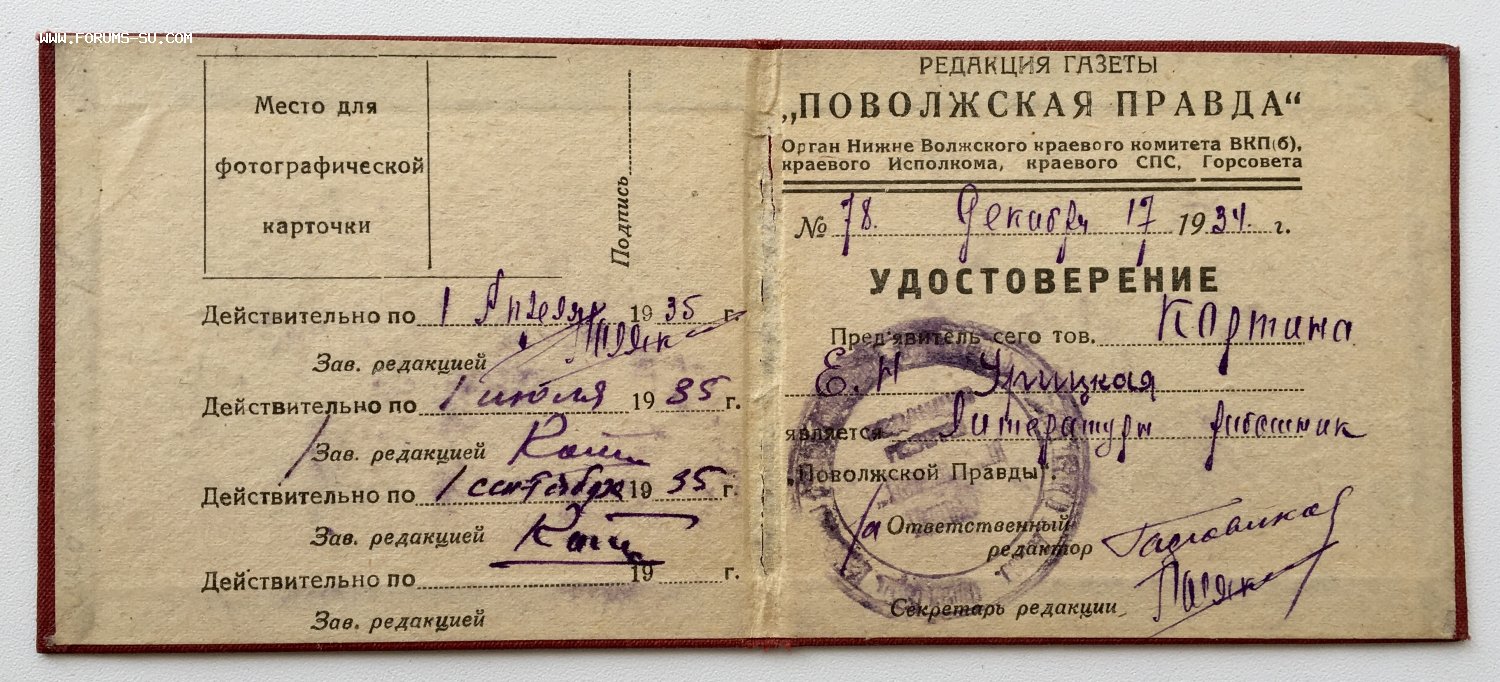 WWW.FORUMS-SU.COM
Место для
фотографической
карточки
Подпись
Действительно по 1 Апреля 1935 г.
Зав. редакцией
Действительно по 1 июля 1935 г.
Зав. редакцией
Действительно по 1 сентября 1935 г.
Зав. редакцией
Действительно по 19 г.
Зав. редакцией
РЕДАКЦИЯ ГАЗЕТЫ
„ПОВОЛЖСКАЯ ПРАВДА“
Орган Нижне Волжского краевого комитета ВКП(б),
краевого Исполкома, краевого СПС, Горсовета
№ 78. Декабря 17 1934. г.
УДОСТОВЕРЕНИЕ
Пред'явитель сего тов. Картина
Е. Н
является Литературн работник
„Поволжской Правды“.
Ответственный
редактор
Секретарь редакции